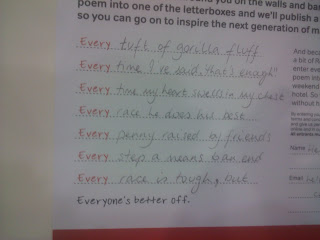 und you on the walls and ba
poem into one of the letterboxes and we'll publish a
so you can go on to inspire the next generation of m
Every tuft of gorilla fluff
Every time I've said, "that's enough"
Every time my heart swells in my chest
Every race he does his best
Every penny raised by friends
Every step a means to an end
Every race is tough, but
Everyone's better off.
And beca
a bit of
enter eve
poem into
weekend
hotel. So
without
Name
Email